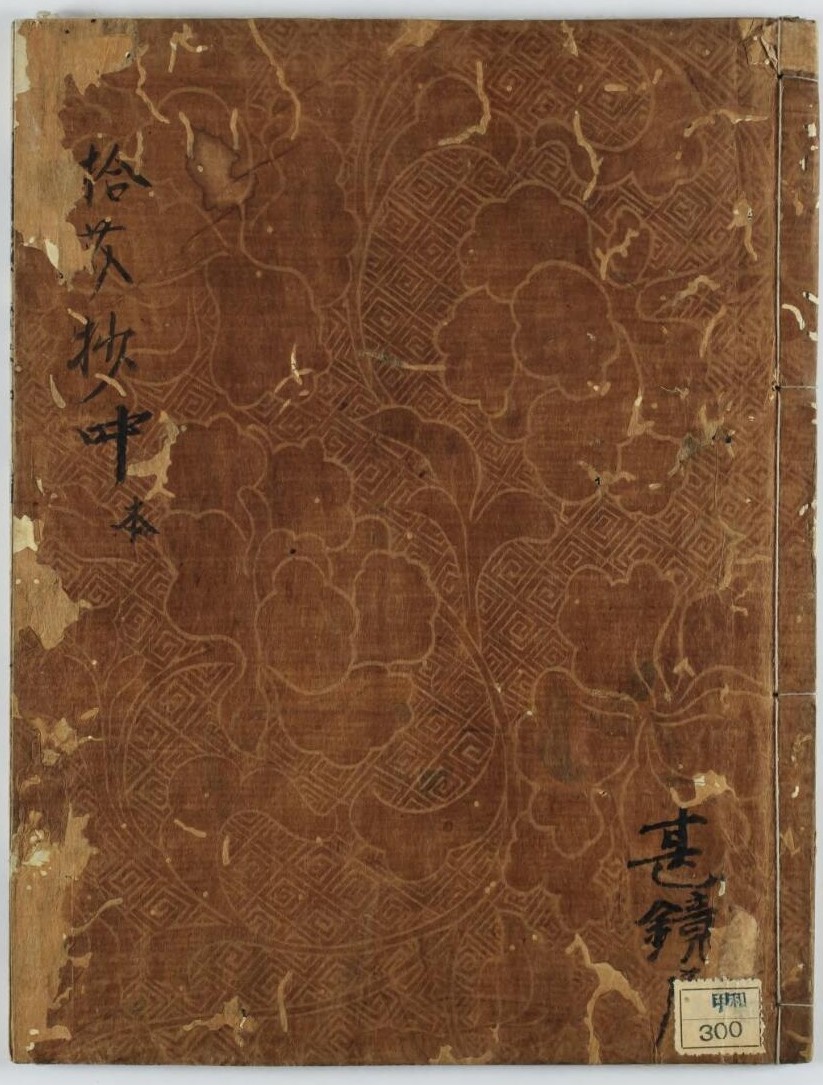 拾芥抄中本
甚鏡
甲和
300